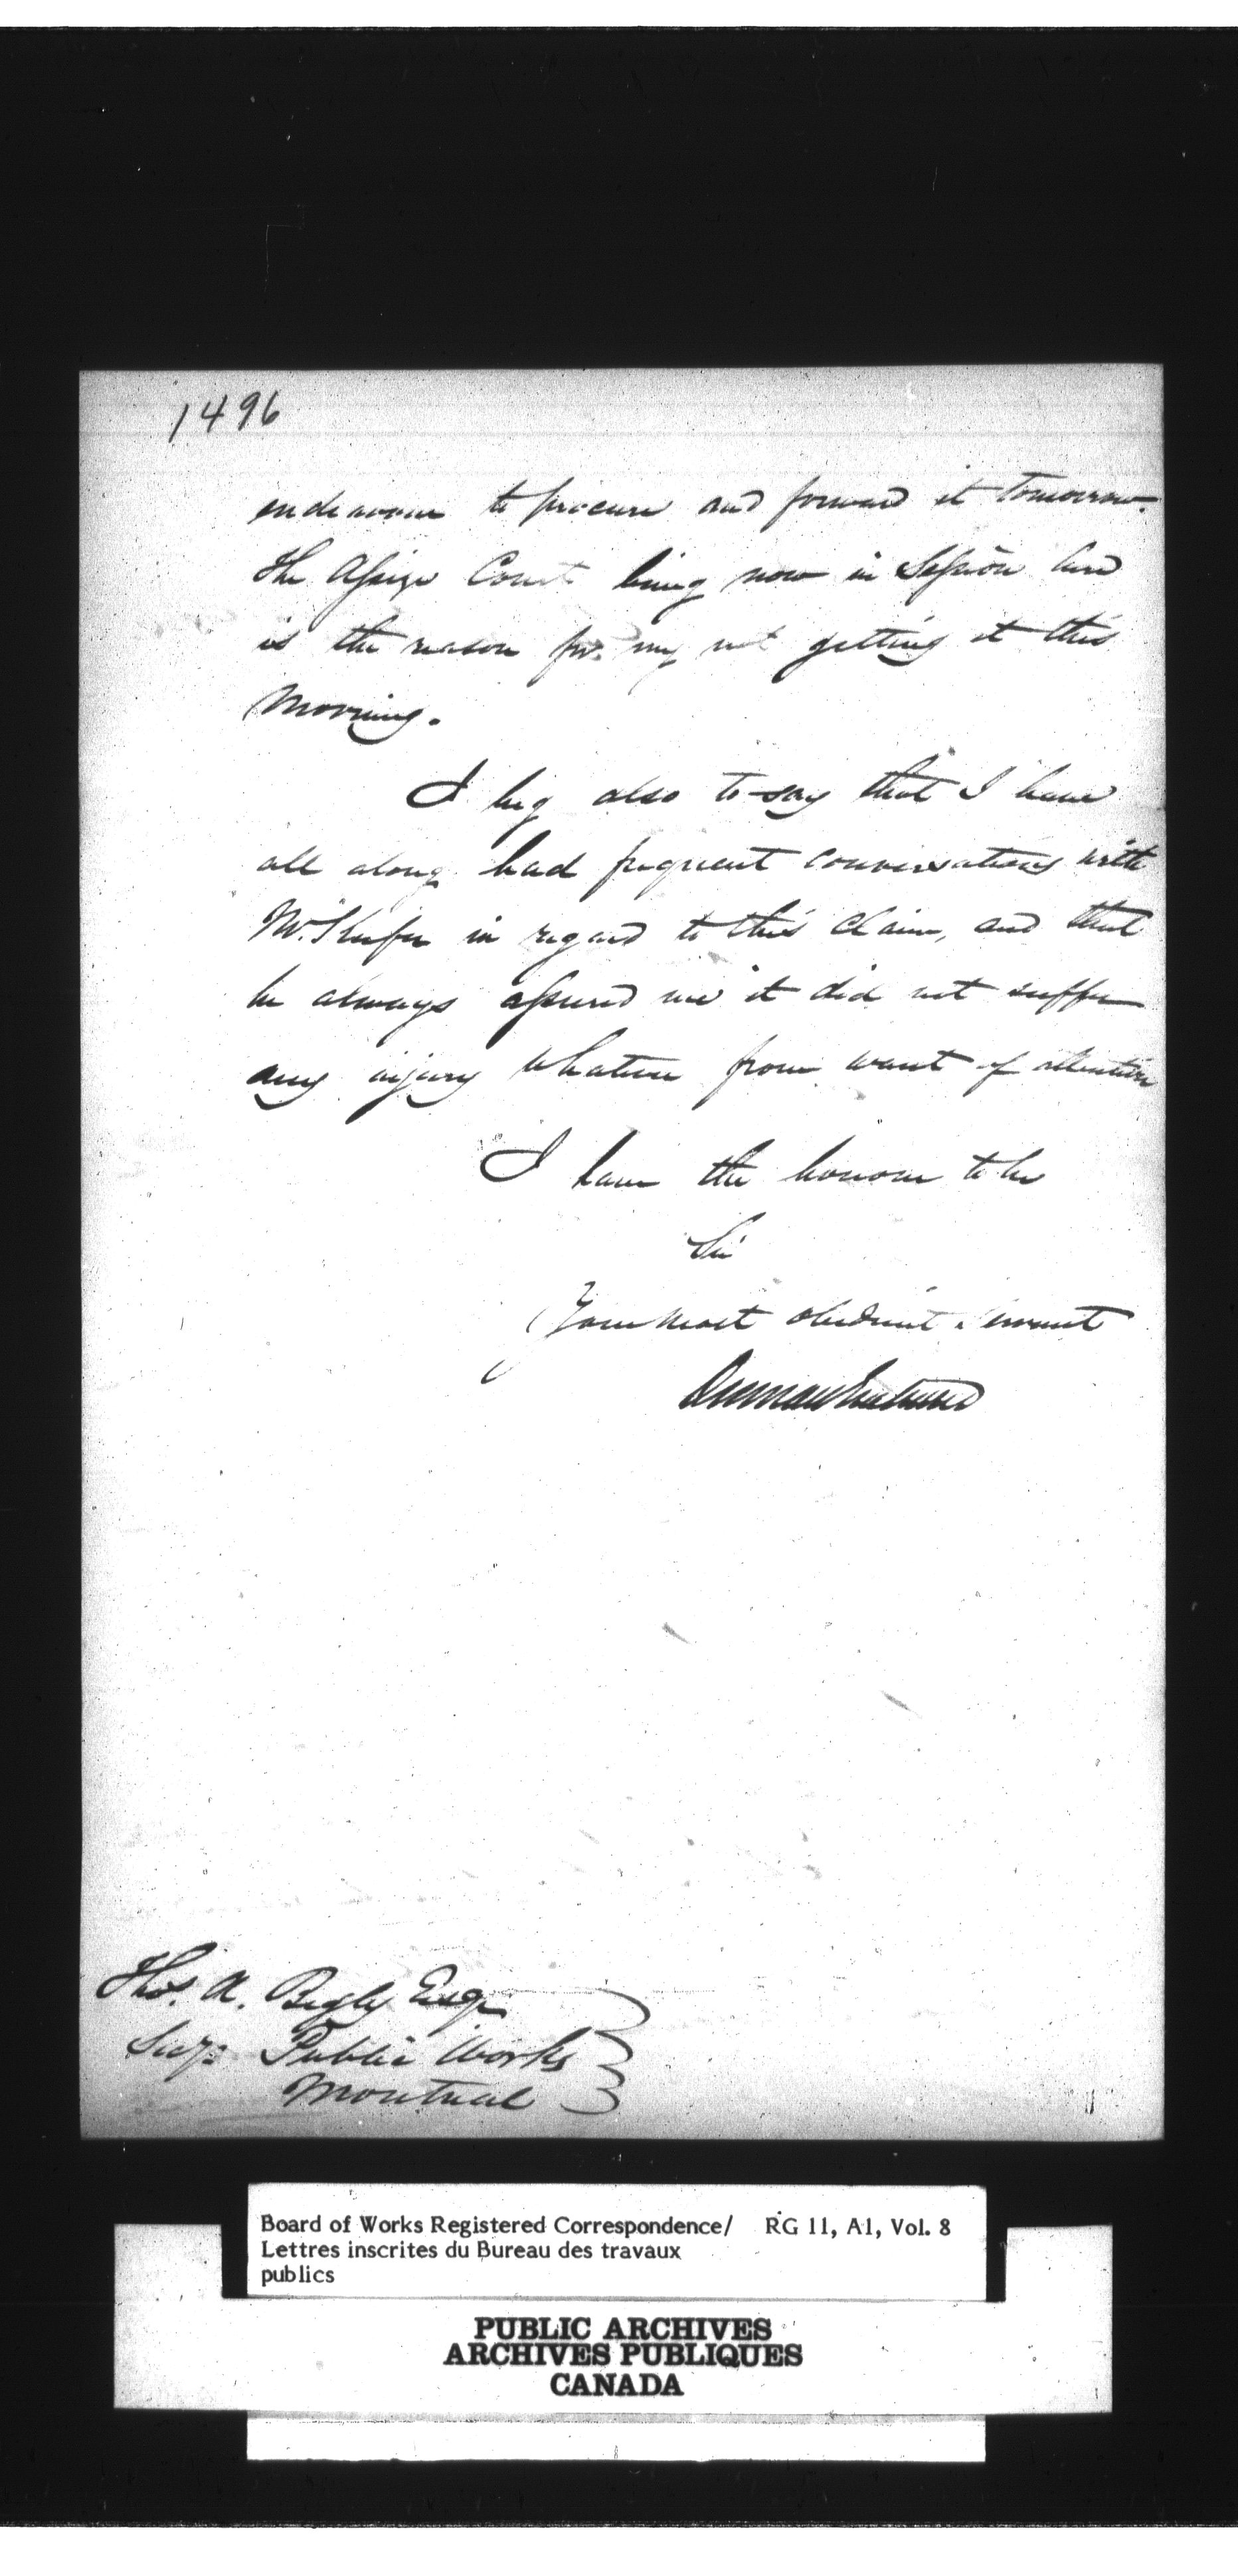 1496
endeavour to procure and forward it tomorrow.
The Assize Court being now in Session here
is the reason for my not getting it this
Morning.
I beg also to say that I have
all along had frequent conversations with
Mr. in regard to this claim, and that
he always assured me it did not suffer
any injury whatever from want of attention
I have the honour to be
Sir
Your most obedient servant
Thos. A. Begly Esqr
Secy: Public Works
Montreal
Board of Works Registered Correspondence/ RG 11, A1, Vol. 8
Lettres inscrites du Bureau des travaux
publics
PUBLIC ARCHIVES
ARCHIVES PUBLIQUES
CANADA